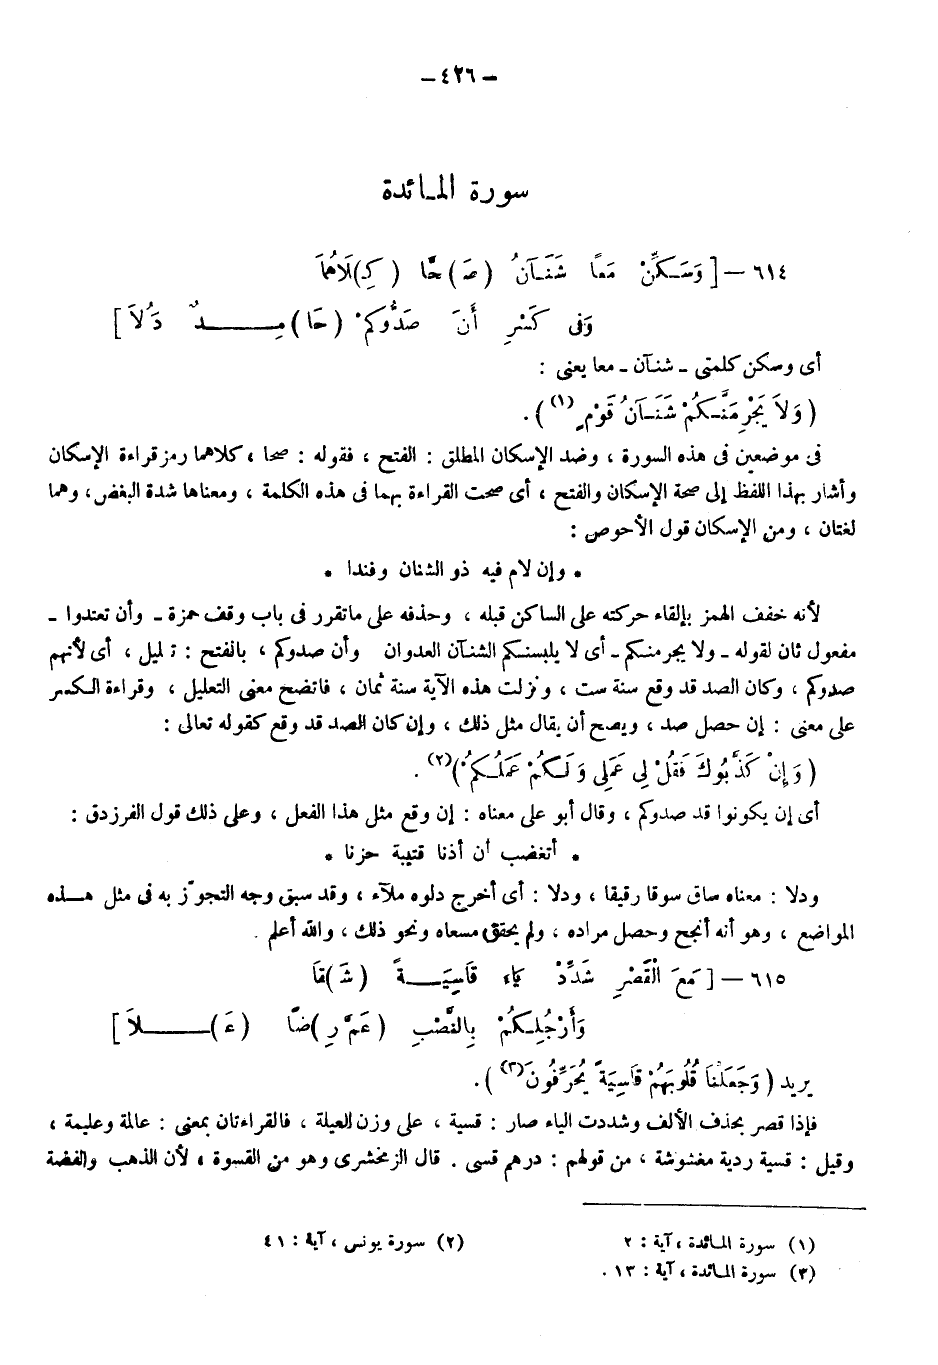 – ٤٢٦ –
سورة المـائدة
٦١٤ – [ وَسَـكِّنْ مَعًا شَنَـآنُ (صَ)حَّا (كِـ)لَاهُمَا
وَفى كَسْرِ أَنَ صَدُّوكمْ (حَا)مِـــدٌ دَلاَ ]
أى وسكن كلمتى ـ شنـآن ـ معا يعنى :
( وَلاَ يَجْرِمَنَّـكُمْ شَنَـآنُ قَوْمٍ (١) ) .
فى موضعين فى هذه السورة ، وضد الإسكان المطلق : الفتح ، فقوله : صحا ، كلاهما رمز قراءة الإسكان
وأشار بهذا اللفظ إلى صحة الإسكان والفتح ، أى صحت القراءة بهما فى هذه الكلمة ، ومعناها شدة البغض، وهما
لغتان ، ومن الإسكان قول الأحوص :
• وإن لام فيه ذو الشنان وفندا •
لأنه خفف الهمز بإلقاء حركته على الساكن قبله ، وحذفه على ماتقرر فى باب وقف حمزة ـ وأن تعتدوا ـ
مفعول ثان لقوله ـ ولا يجرمنـكم ـ أى لا يلبسنـكم الشنآن العدوان وأن صدوكم ، بالفتح : تليل ، أى لأنهم
صدوكم ، وكان الصد قد وقع سنة ست ، ونزلت هذه الآية سنة ثمان ، فاتضح معنى التعليل ، وقراءة الـكسر
على معنى : إن حصل صد ، ويصح أن يقال مثل ذلك ، وإن كان الصد قد وقع كقوله تعالى :
( وَإِنْ كَذَّبُوكَ فَقُلْ لِى عَمَلِى وَلَـكُمْ عَمَلُـكُمْ )(٢) .
أى إن يكونوا قد صدوكم ، وقال أبو على معناه : إن وقع مثل هذا الفعل ، وعلى ذلك قول الفرزدق :
• أتغضب أن أذنا قتيبة حزنا •
ودلا : معناه ساق سوقا رقيقا ، ودلا : أى أخرج دلوه ملآء ، وقد سبق وجه التجوّز به فى مثل هـــذه
المواضع ، وهو أنه أنجح وحصل مراده ، ولم يحقق مسعاه ونحو ذلك ، والله أعلم .
٦١٥ – [ مَعَ الْقَصْرِ شَدِّدْ يَاءَ قَاسِيَـــةً (شَـ)فَا
وَأَرْجُلِـكُمْ بِالنَّصْبِ (عَمَّ رِ)ضًا (عَـ)ـــلاَ ]
يريد ( وَجَعَلْنَا قُلُوبَهُمْ قَاسِيَةً يُحَرِّفُونَ(٣) ) .
فإذا قصر بحذف الألف وشددت الياء صار : قسية ، على وزن لعيلة ، فالقراءتان بمعنى : عالمة وعليمة ،
وقيل : قسية ردية مغشوشة ، من قولهم : درهم قسى . قال الزمخشرى وهو من القسوة ، لأن الذهب والفضة
(١) سورة المـائدة ، آية : ٢
(٢) سورة يونس ، آية : ٤١
(٣) سورة المـائدة ، آية : ١٣ .